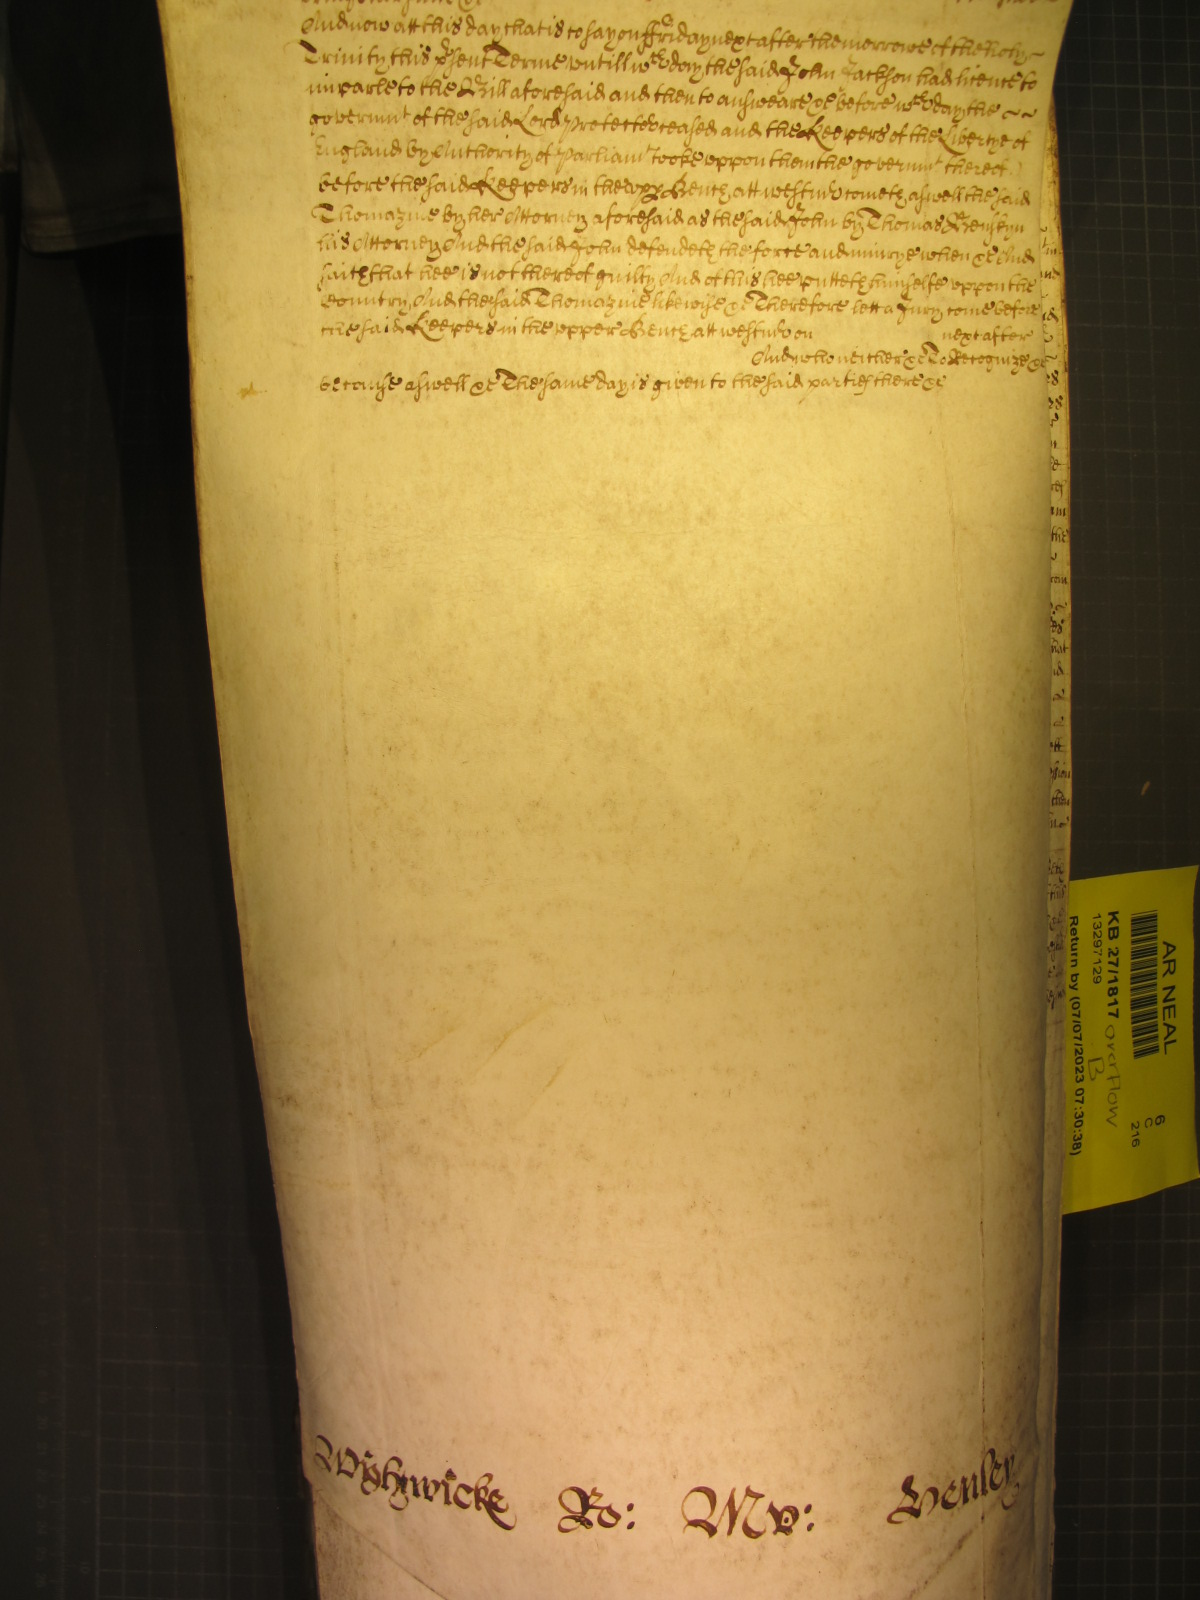 And now att this day that is to say on ffriday next after the morrowe of the holy
Trinity this p'sent Terme untill wch day the said John Jackson had licence to
imparle to the Bill aforesaid and then to answeare &c before wch day the
governmt of the said Lord Protector ceased and the Keepers of the Libertye of
England by Authority of Parliamt tooke uppon them the governmt thereof
before the said Keepers in the upp Bench att westmr cometh aswell the said
Thomazine by her Attorney aforesaid as the said John by Thomas Renskyn
his Attorney And the said John defendeth the force and iniurye when &c And
saith that hee is not thereof guilty And of this hee putteth himselfe uppon the
Country And the said Thomazine likewise &c Therefore lett a Jury come before
the said Keepers in the upper Bench att westmr on next after
And who neither &c To Recognize &c
because aswell &c The same day is given to the said parties there &c
Wyghtwicke Ro: Mv: Henley
AR NEAL
6
C
216
KB 27/1817 overflow
B
13297129
Return by (07/07/2023 07:30:38)